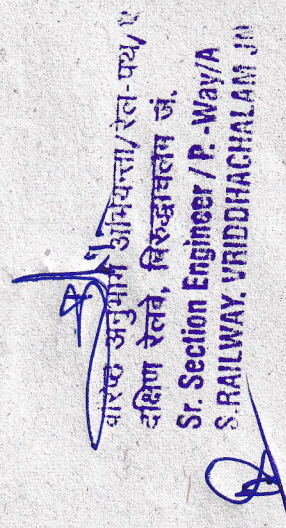 वरिष्ठ अनुभाग अभियन्ता/रेल-पथ/ए
दक्षिण रेलवे, विरुद्धाचलम जं.
Sr. Section Engineer / P.-Way/A
S.RAILWAY, VRIDDHACHALAM JN